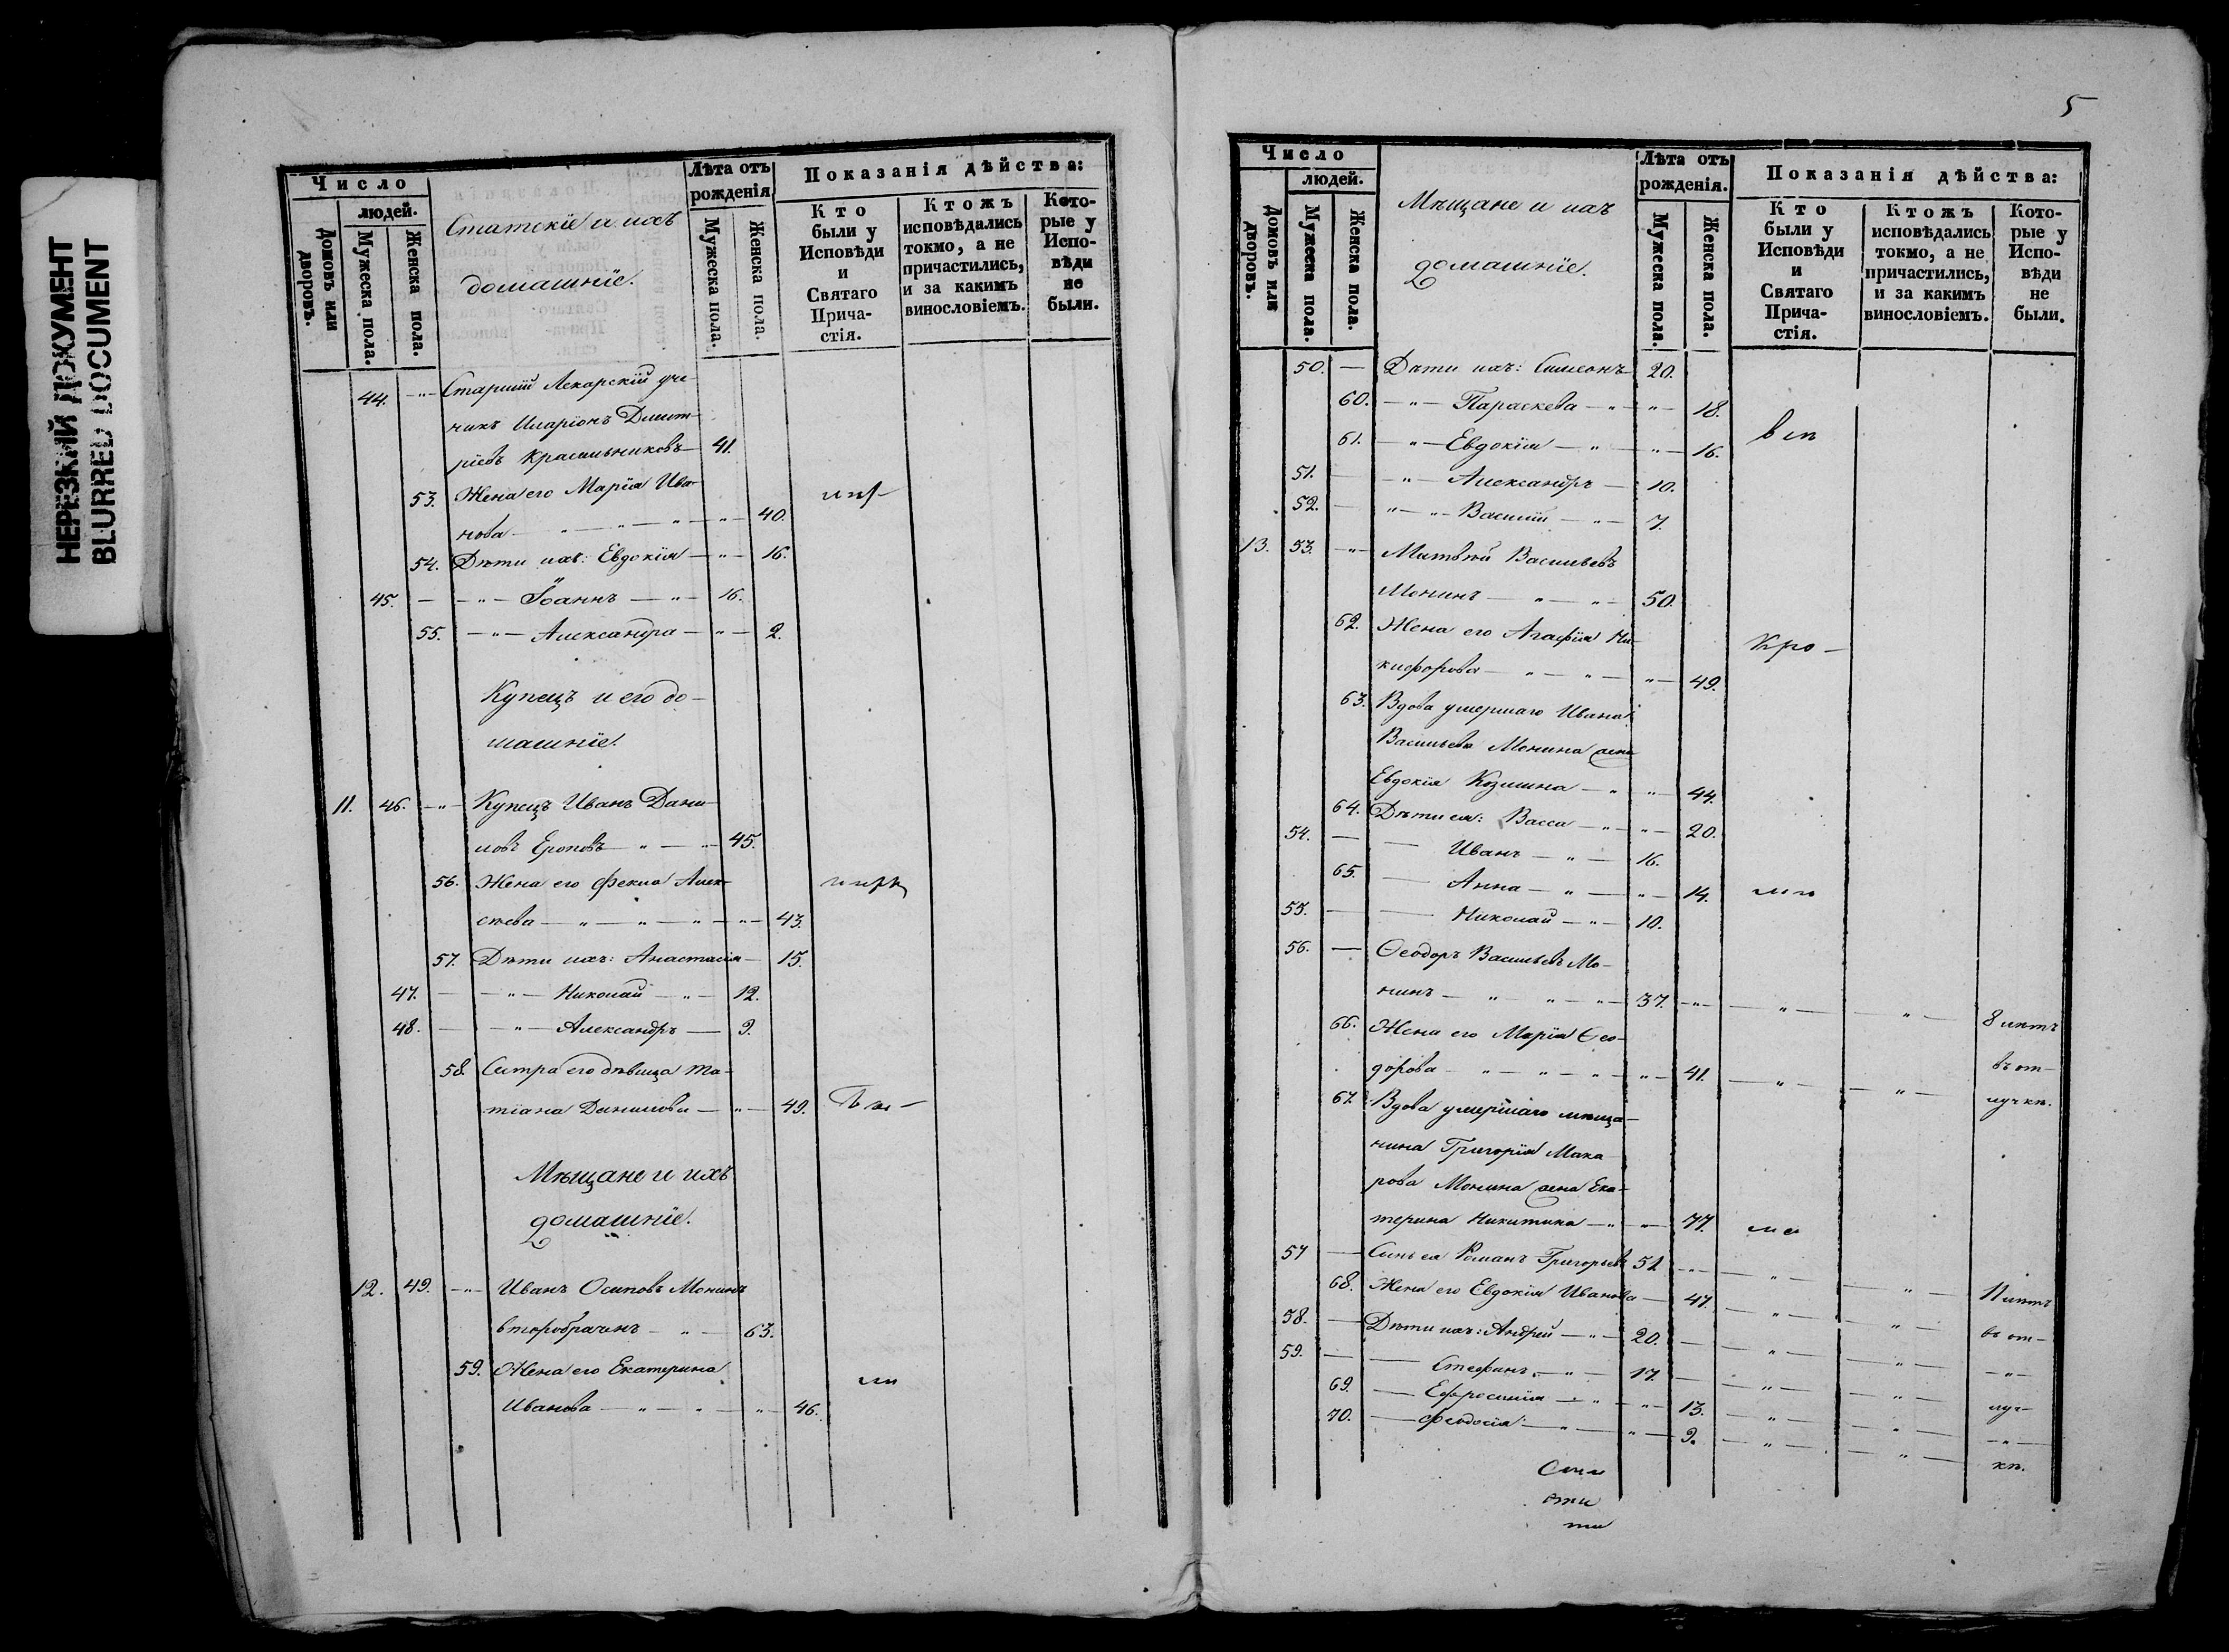 НЕРЕЗКИЙ ДОКУМЕНТ
BLURRED DOCUMENT
Число
людей.
Домовъ или дворовъ.
Мужеска пола.
Женска пола.
Статскіе и ихъ
домашніе.
Лѣта отъ рожденія
Мужеска пола.
Женска пола.
Показанія дѣйства:
Кто были у Исповѣди и Святаго Прича-стія.
Ктожъ исповѣдались токмо, а не причастились, и за какимъ винословіемъ.
Кото-рые у Испо-вѣди не были.
44. — " — Старшій Лекарскій уче-
никъ Иларіонъ Димит-
ріевъ Красильниковъ — 41.
53. Жена его Марія Ива-
нова — " — " — " — " — 40.
54. Дѣти ихъ: Евдокія — " — 16.
45. — — " — Іоаннъ — " — 16.
55. — " — Александра — " — 2.
Купецъ и его до-
машніе.
11. 46. — " — Купецъ Иванъ Дани-
ловъ Ероповъ — " — " — 45.
56. Жена его Фекла Алек-
сѣева — " — " — " — " — 43.
57. Дѣти ихъ: Анастасія — 15.
47. — — " — Николай — " — 12.
48. — — " — Александръ — 9.
58. Сестра его дѣвица Та-
тіана Данилова — " — 49.
Мѣщане и ихъ
домашніе.
12. 49. — " — Иванъ Осиповъ Монинъ
второбраченъ — " — 63.
59. Жена его Екатерина
Иванова — " — " — " — 46.
5
Число
людей.
Домовъ или дворовъ.
Мужеска пола.
Женска пола.
Мѣщане и ихъ
домашніе.
Лѣта отъ рожденія.
Мужеска пола.
Женска пола.
Показанія дѣйства:
Кто были у Исповѣди и Святаго Прича-стія.
Ктожъ исповѣдались токмо, а не причастились, и за какимъ винословіемъ.
Кото-рые у Испо-вѣди не были.
50. — Дѣти ихъ: Симеонъ 20.
60. — " — Параскева — " — " — 18.
61. — " — Евдокія — " — " — 16.
51. — — " — Александръ — 10.
52. — " — " — Василій — " — 7.
13. 53. — " — Матвѣй Васильевъ
Монинъ — " — " — 50.
62. Жена его Агафія Ни-
кифорова — " — " — " — 49.
63. Вдова умершаго Ивана
Васильева Монина жена
Евдокія Козмина — " — " — 44.
64. Дѣти ея: Васса — " — " — 20.
54. — — Иванъ — " — 16.
65. — Анна — " — " — 14.
55. — — Николай — " — 10.
56. — Ѳеодоръ Васильевъ Мо-
нинъ — " — " — " — 37. — " — " — " — 8 лѣтъ
66. Жена его Марія Ѳео-
дорова — " — " — " — " — 41. — " — " — въ от-
лучкѣ.
67. Вдова умершаго мѣща-
нина Григорія Мака-
рова Монина жена Ека-
терина Никитина — " — " — 77.
57 — Сынъ ея Романъ Григорьевъ 51 — " — " — " — 11 лѣтъ
68. Жена его Евдокія Иванова — 47. — " — " — въ от-
58. — Дѣти ихъ: Андрей — " — 20. — " — " — " —
59. — — Стефанъ — " — 17. — " — " — луч-
69. — Ефросинія — " — " — 13. — " — " — " —
70. — Феодосія — " — " — 9. — " — " — кѣ.